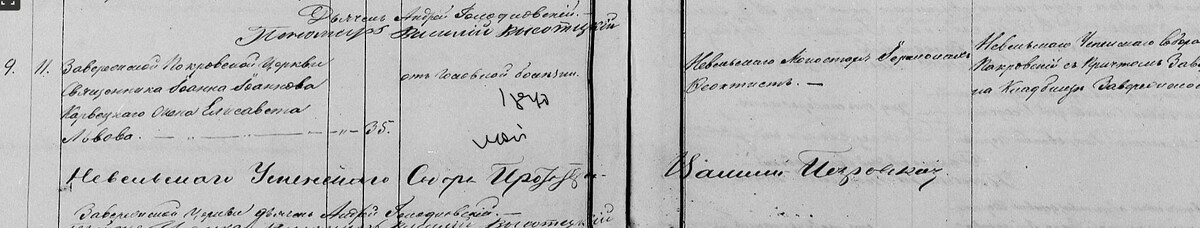 Дьячекъ Андрей Голодковскій. —
Пономарь Василій Высотцкій
9. 11. Завережской Покровской Церкви
Священника Іоанна Іоаннова
Карвецкаго жена Елисавета
Львова. — „ — 35.
отъ головной болезни.
май
Невельскаго Монастыря Іеромонахъ
Ѳеоктистъ. —
Невельскаго Успенскаго Собора
Покровскій съ Причтомъ
на Кладбище Завережской
Невельскаго Успенскаго Собора Протоіерей Василій Покровскій
Завережской Церкви дьячекъ Андрей Голодковскій. —
Василій Высотцкій